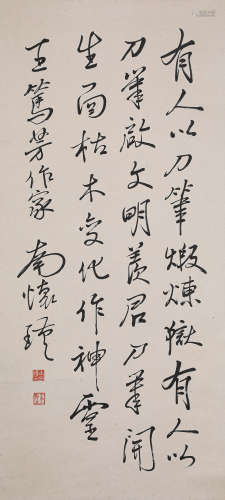 有人以刀筆煅煉獄有人以
刀筆啟文明羨君刀筆開
生面枯木變化作神靈
王篤芳作家 南懷瑾